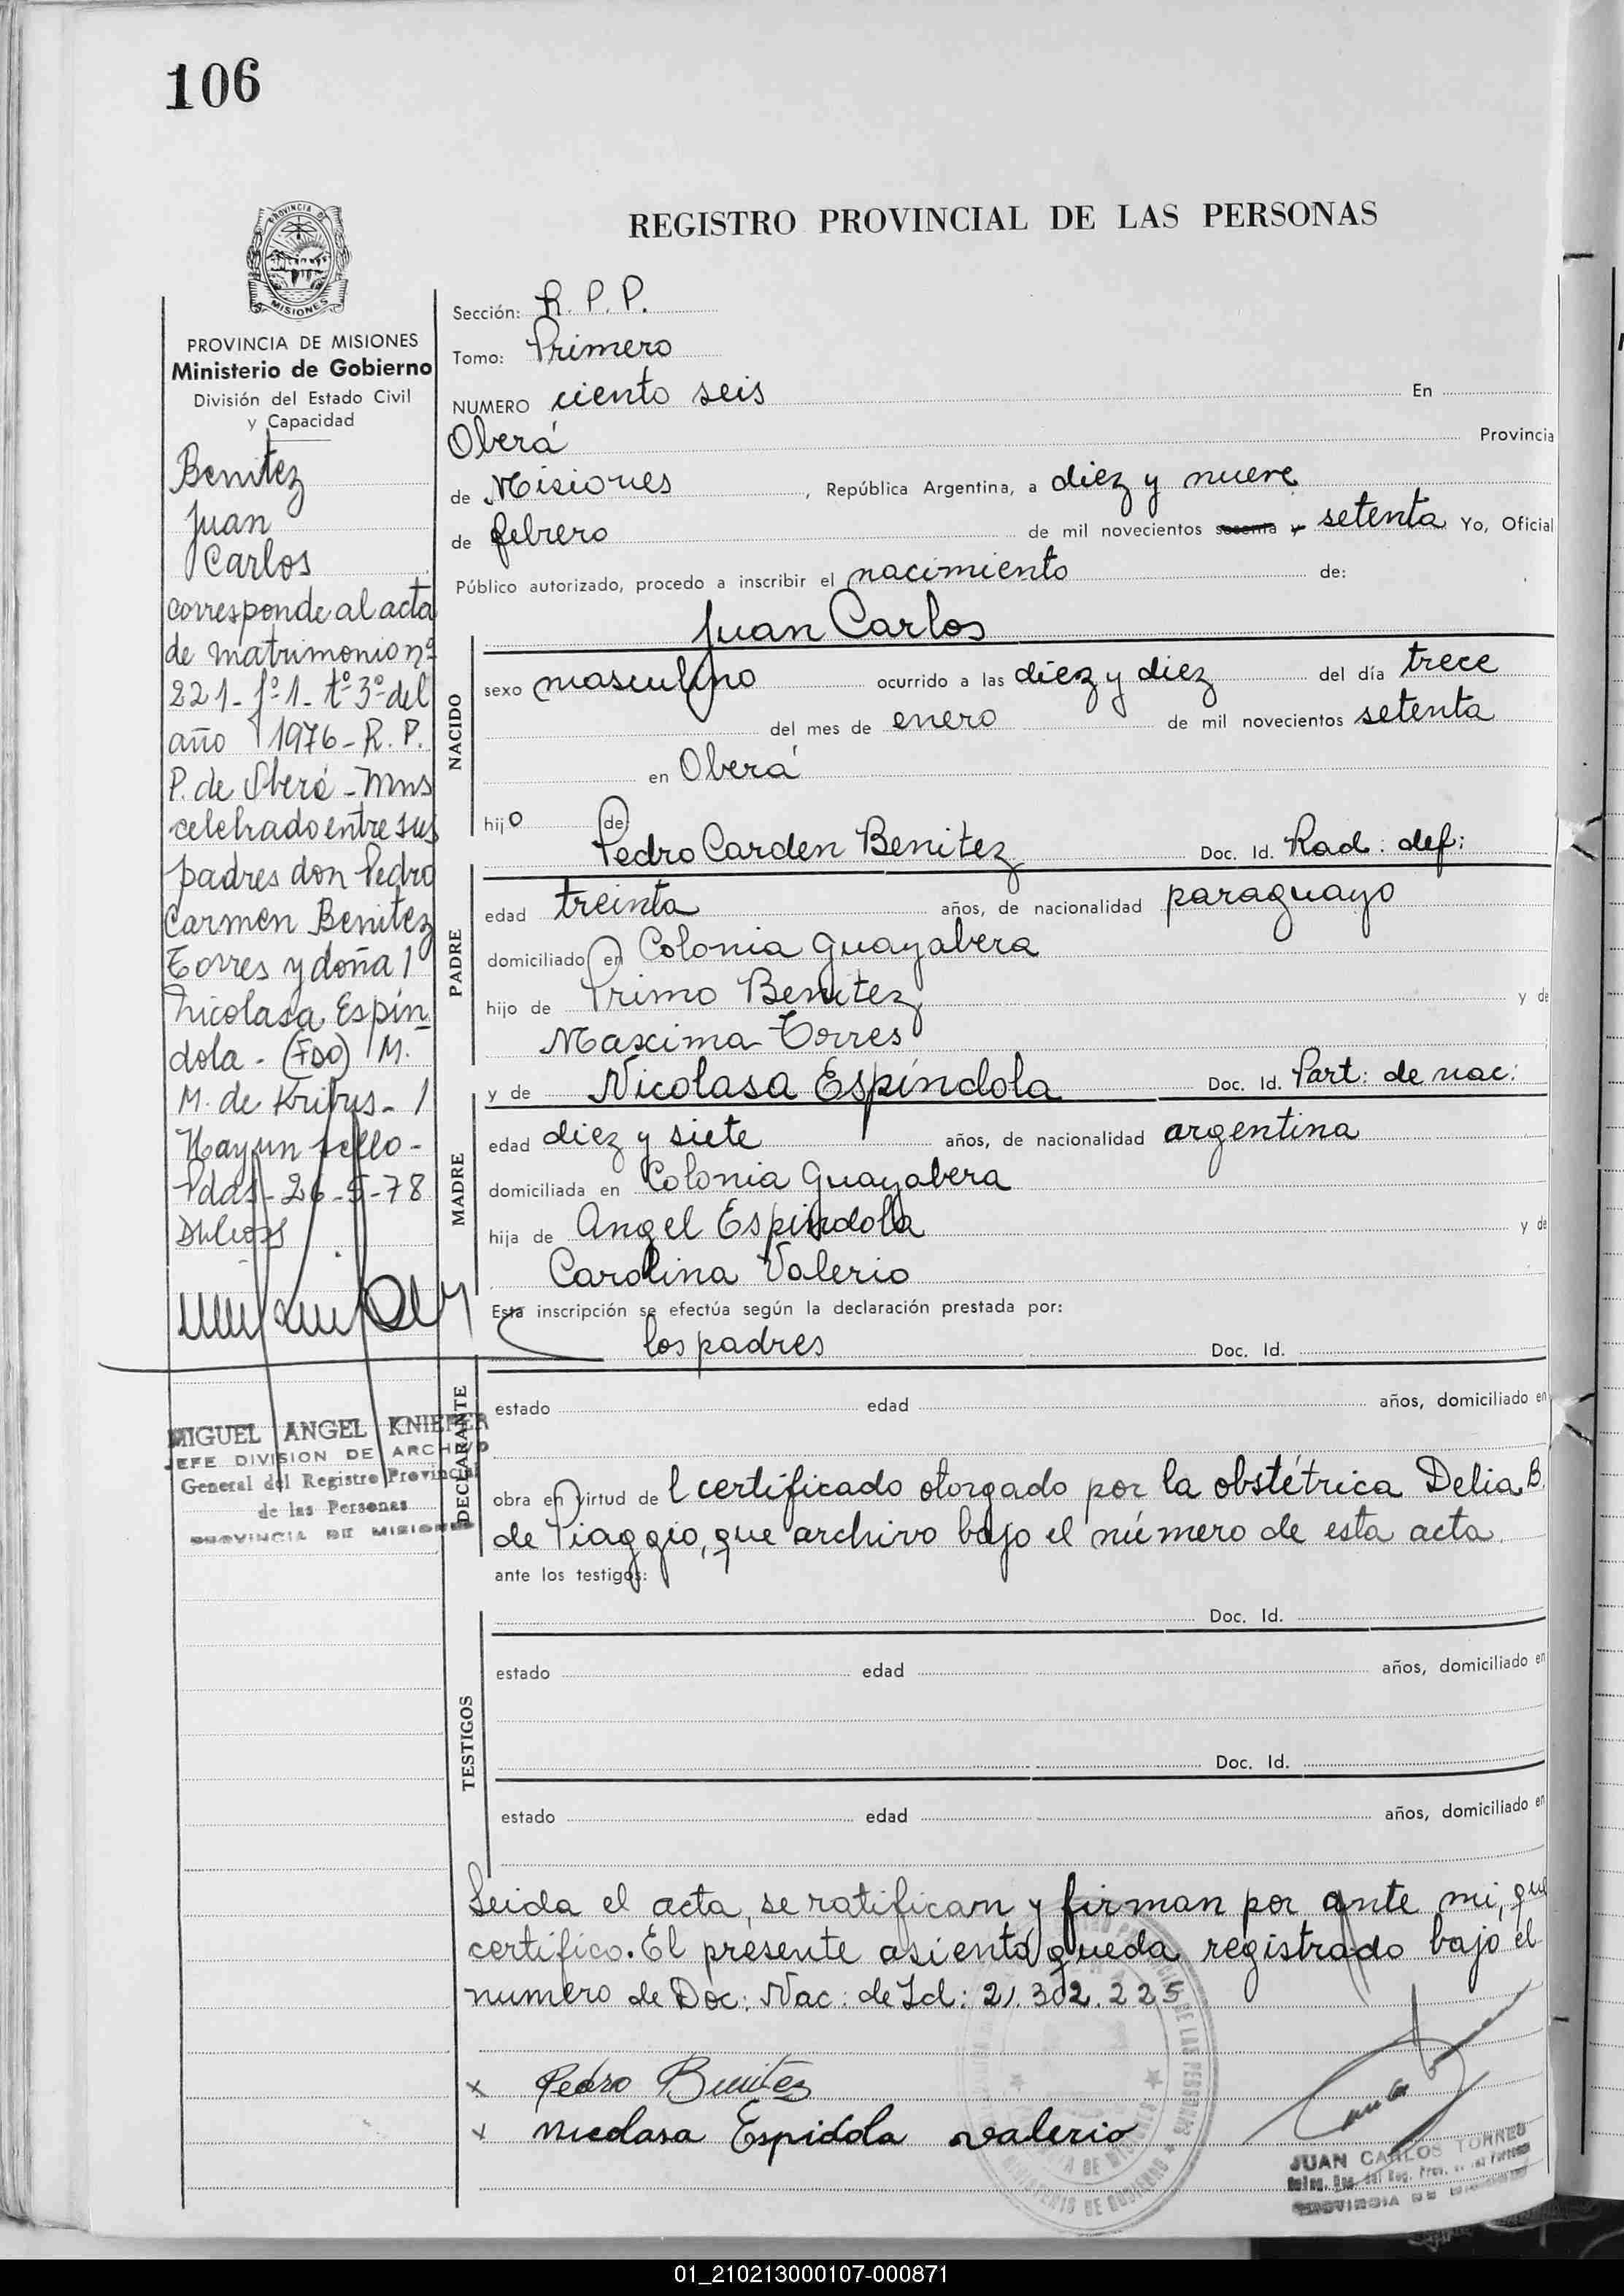 106
PROVINCIA DE
MISIONES
PROVINCIA DE MISIONES
Ministerio de Gobierno
División del Estado Civil
y Capacidad
Benitez
Juan
Carlos
corresponde al acta
de matrimonio nº
221 - fº 1 - tº 3º del
año 1976 - R. P.
P. de Oberá - Mnes
celebrado entre sus
padres don Pedro
Carmen Benitez
Torres y doña
Nicolasa Espín
dola - (FDO) M.
M. de
Hay un sello -
Pdas - 26-5-78
MIGUEL ANGEL KNIEFER
JEFE DIVISION DE ARCHIVO
General del Registro Provincial
de las Personas
PROVINCIA DE MISIONES
REGISTRO PROVINCIAL DE LAS PERSONAS
Sección: R. P. P.
Tomo: Primero
NUMERO ciento seis En
Oberá Provincia
de Misiones, República Argentina, a diez y nueve
de febrero de mil novecientos sesenta y setenta Yo, Oficial
Público autorizado, procedo a inscribir el nacimiento de:
Juan Carlos
NACIDO
sexo masculino ocurrido a las diez y diez del día trece
del mes de enero de mil novecientos setenta
en Oberá
hijo de
Pedro Carden Benitez Doc. Id. Rad: def:
PADRE
edad treinta años, de nacionalidad paraguayo
domiciliado en Colonia Guayabera
hijo de Primo Benitez y de
Maxima Torres
y de Nicolasa Espíndola Doc. Id. Part: de nac:
MADRE
edad diez y siete años, de nacionalidad argentina
domiciliada en Colonia Guayabera
hija de Angel Espíndola y de
Carolina Valerio
Esta inscripción se efectúa según la declaración prestada por:
los padres Doc. Id.
DECLARANTE
estado edad años, domiciliado en
obra en virtud de l certificado otorgado por la obstétrica Delia B.
de Piaggio, que archivo bajo el número de esta acta.
ante los testigos:
Doc. Id.
TESTIGOS
estado edad años, domiciliado en
Doc. Id.
estado edad años, domiciliado en
Leida el acta, se ratifican y firman por ante mi, que
certifico. El presente asiento queda registrado bajo el
numero de Doc: Nac: de Id: 21.302.225
x Pedro Benitez
x Nicolasa Espidola Valerio
JUAN CARLOS TORRES
PROVINCIA DE MISIONES
01_210213000107-000871